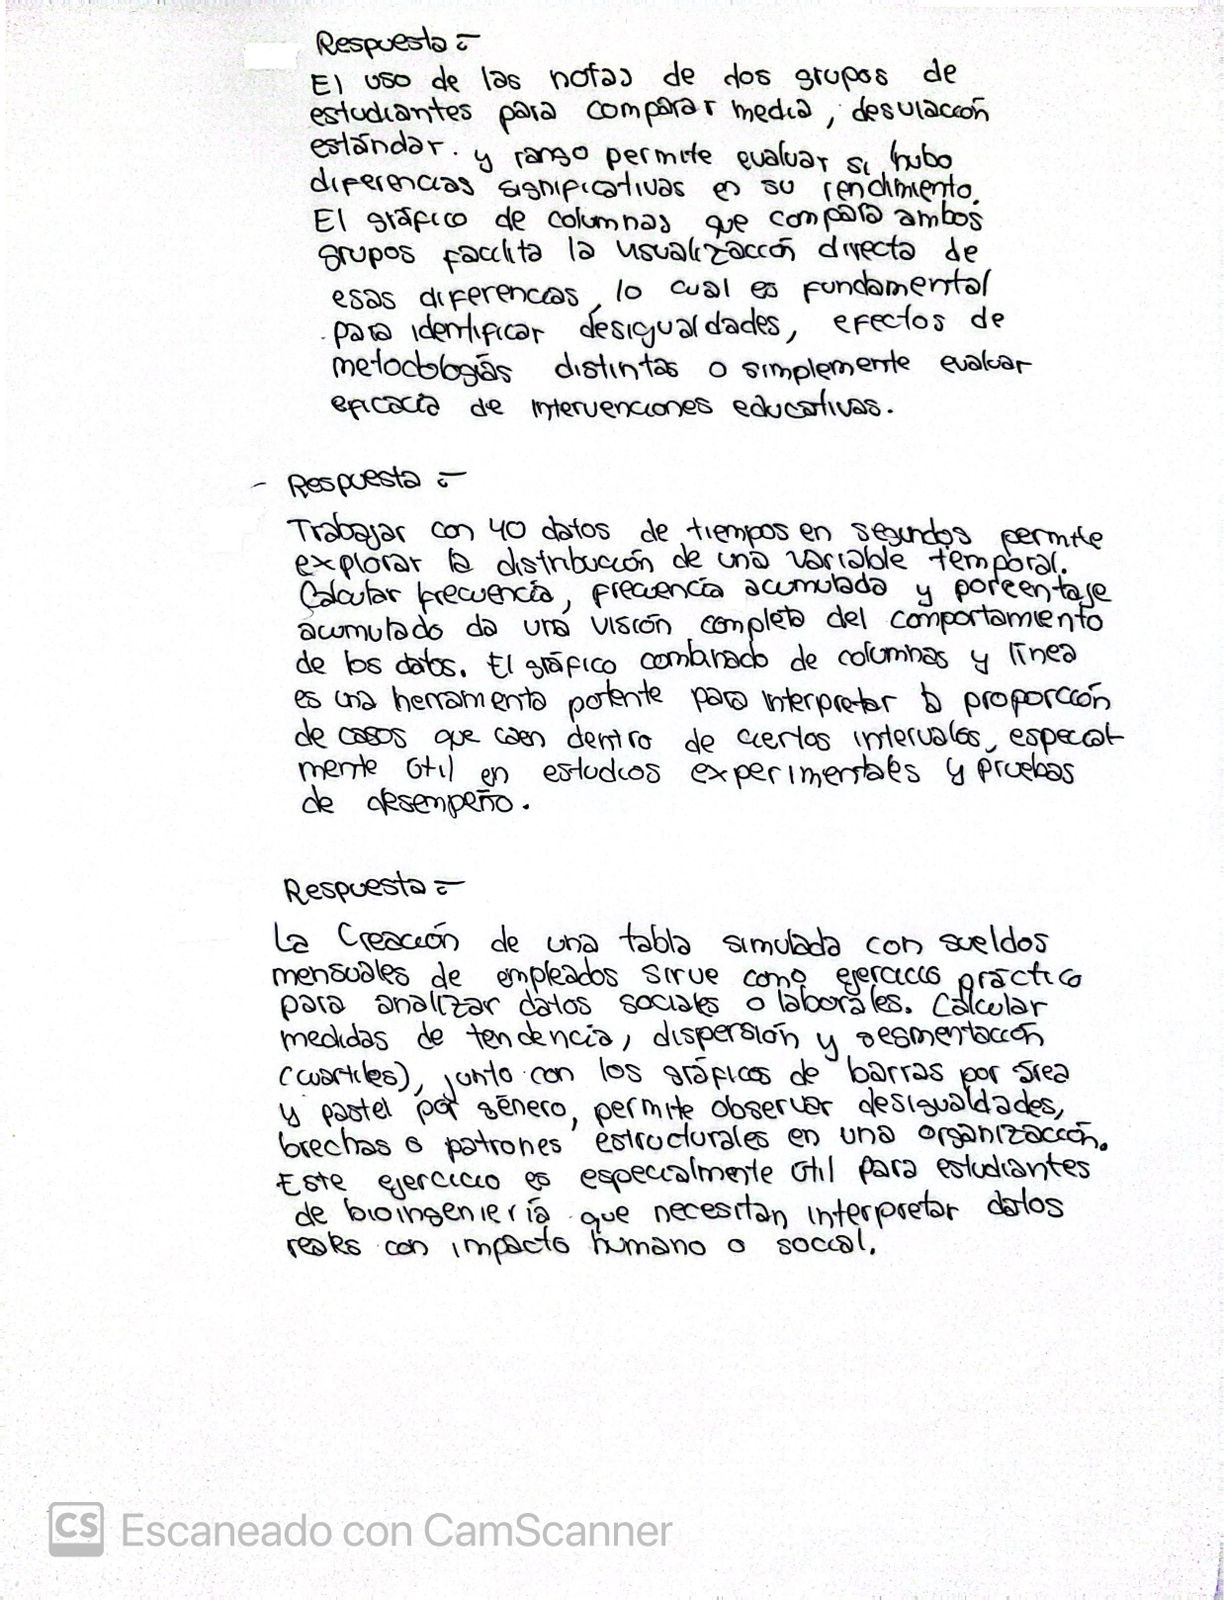 Respuesta:-
El uso de las notas de dos grupos de
estudiantes para comparar media, desviación
estándar. y rango permite evaluar si hubo
diferencias significativas en su rendimiento.
El gráfico de columnas que compara ambos
grupos facilita la visualización directa de
esas diferencias, lo cual es fundamental
para identificar desigualdades, efectos de
metodologías distintas o simplemente evaluar
eficacia de intervenciones educativas.
- Respuesta:-
Trabajar con 40 datos de tiempos en segundos permite
explorar la distribución de una variable temporal.
Calcular frecuencia, frecuencia acumulada y porcentaje
acumulado da una visión completa del comportamiento
de los datos. El gráfico combinado de columnas y línea
es una herramienta potente para interpretar la proporción
de casos que caen dentro de ciertos intervalos, especial
mente útil en estudios experimentales y pruebas
de desempeño.
Respuesta:-
La Creación de una tabla simulada con sueldos
mensuales de empleados sirve como ejercicio práctico
para analizar datos sociales o laborales. Calcular
medidas de tendencia, dispersión y segmentación
(cuartiles), junto con los gráficos de barras por área
y pastel por género, permite observar desigualdades,
brechas o patrones estructurales en una organización.
Este ejercicio es especialmente útil para estudiantes
de bioingeniería que necesitan interpretar datos
reales con impacto humano o social.
CS Escaneado con CamScanner